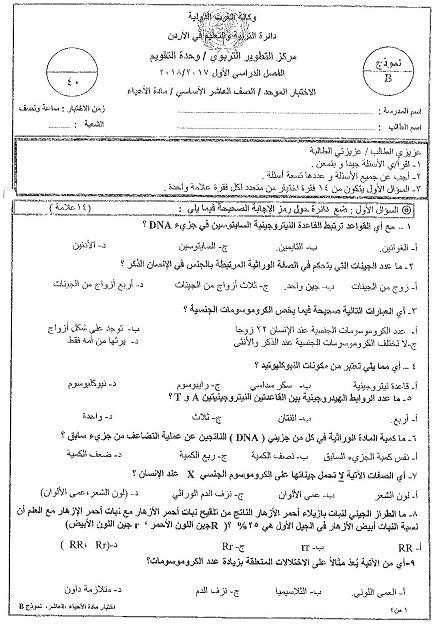 وكالة الغوث الدولية
دائرة التربية والتعليم في الأردن
مركز التطوير التربوي / وحدة التقويم
الفصل الدراسي الأول ٢٠١٨/٢٠١٧
الاختبار الموحد / الصف العاشر الأساسي / مادة الأحياء
نموذج
B
٤٠
اسم المدرسة :
زمن الاختبار : ساعة ونصف
اسم الطالب :
الشعبة :
عزيزي الطالب / عزيزتي الطالبة
١- اقرأ/ي الأسئلة جيدا و بتمعن .
٢- أجب عن جميع الأسئلة و عددها تسعة أسئلة .
٣- السؤال الأول يتكون من ١٤ فقرة اختيار من متعدد لكل فقرة علامة واحدة .
السؤال الأول : ضع دائرة حول رمز الإجابة الصحيحة فيما يلي : (١٤ علامة)
١ – مع أي القواعد ترتبط القاعدة النيتروجينية السايتوسين في جزيء DNA ؟
أ- الغوانين. ب- الثايمين. ج- السايتوسين د- الأدنين
٢- ما عدد الجينات التي يتحكم في الصفة الوراثية المرتبطة بالجنس في الإنسان الذكر ؟
أ- زوج من الجينات ب- جين واحد. ج- ثلاث أزواج من الجينات د- أربع أزواج من الجينات
٣- أي العبارات التالية صحيحة فيما يخص الكروموسومات الجنسية ؟
أ- عدد الكروموسومات الجنسية عند الإنسان ٢٢ زوجا ب- توجد على شكل أزواج
ج- لا تختلف الكروموسومات الجنسية عند الذكر والأنثى د- يرثها من أمه فقط
٤ – أي مما يلي تعتبر من مكونات النيوكليوتيد ؟
أ- قاعدة نيتروجينية ب- سكر سداسي ج- رايبوسوم د- نيوكليوسوم
٥- ما عدد الروابط الهيدروجينية بين القاعدتين النيتروجينيتين A و T ؟
أ- أربع. ب- اثنتان ج- ثلاث د- واحدة
٦- ما كمية المادة الوراثية في كل من جزيئي ( DNA ) الناتجين عن عملية التضاعف من جزيء سابق ؟
أ- نفس كمية الجزيء السابق ب- نصف الكمية ج- ربع الكمية د- ضعف الكمية
٧- أي الصفات الآتية لا تحمل جيناتها على الكروموسوم الجنسي X عند الإنسان ؟
أ- لون الشعر ب- عمى الألوان ج- نزف الدم الوراثي د- (لون الشعر، عمى الألوان)
٨- ما الطراز الجيني لنبات بازيلاء أحمر الأزهار الناتج من تلقيح نبات أحمر الأزهار مع نبات أحمر الأزهار مع العلم أن
نسبة النبات أبيض الأزهار في الجيل الأول هي ٢٥% ؟( R جين اللون الأحمر ، r جين اللون الأبيض)
أ- RR ب- rr ج- Rr د-(RR، Rr )
٩- أي من الآتية يُعد مثالاً على الاختلالات المتعلقة بزيادة عدد الكروموسومات؟
أ- العمى اللوني. ب- الثلاسيميا ج- نزف الدم د- متلازمة داون
اختبار مادة الأحياء ،العاشر، نموذج B